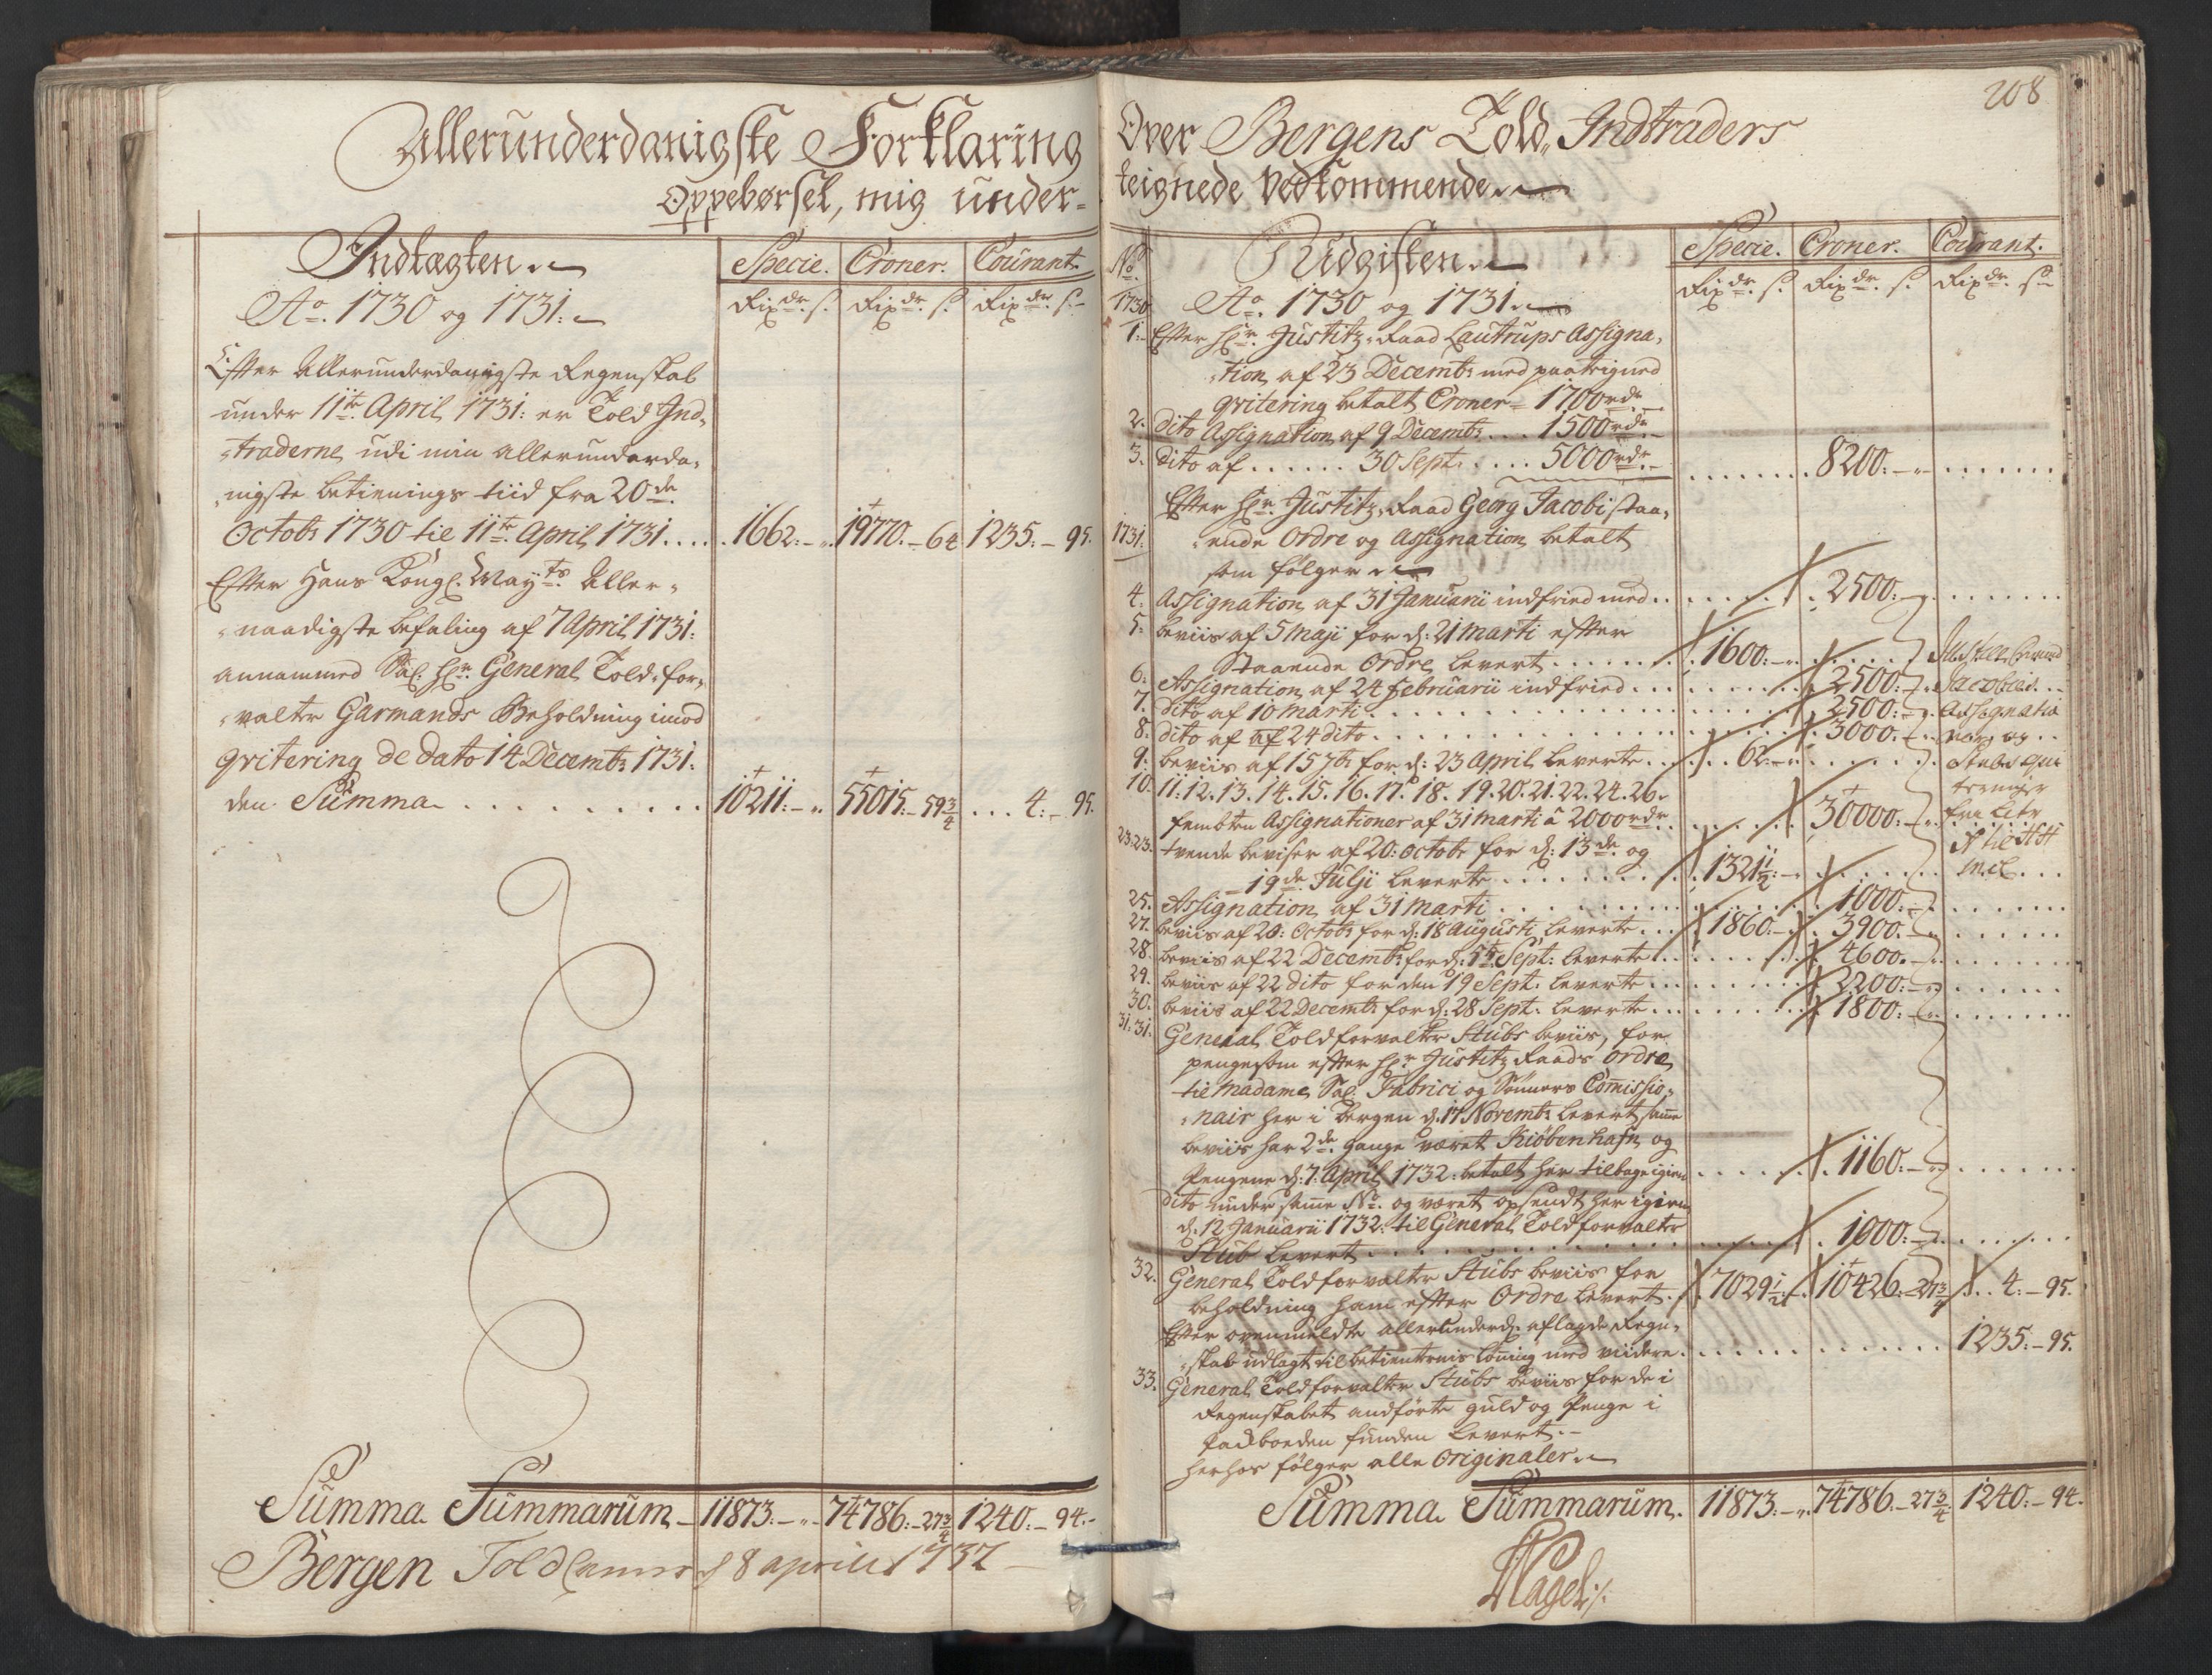 Allerunderdanigste Forklaring
Oppebørsel, mig under-
Indtægten
Specie. Croner. Courant.
Rixdr. s. Rixdr. s. Rixdr. s.
Ao. 1730 og 1731:
Efter Allerunderdanigste Regenskab
under 11te April 1731: er Told Ind,
,traderne udi min allerunderda,
,nigste betienings tiid fra 20de
Octobr 1730 til 11te April 1731.... 1662:-,, 19770.-64 1235.-95.
Efter Hans Kongl. Mayts Aller,
,naadigste befaling af 7 April 1731:
annammed Sal. Hr. General Told,for,
,valter Garmands Beholdning imod
qvitering de dato 14 Decembr 1731:
den Summa ......... 10211:-,, 55015.-59¾ ... 4:-95.
Summa Summarum 11873:-,,- 74786:-27¾ 1240:-94.-
Bergen Told d 8 aprili 1732
208
Over Bergens Told,, Indtraders
teignede vedkommende
No. Udgiften Specie. Croner. Courant.
Rixdr. s. Rixdr. s. Rixdr. s.
1730 Ao. 1730 og 1731
1. Efter Hr. Justitz,Raad Lautrups Assigna,
,tion af 23 Decembr med paateigned
qvitering betalt Croner= 1700rdr
2. Dito Assignation af 9 Decembr... 1500rdr
3. Dito af...... 30 Sept..... 5000rdr ....... 8200:-,,-.......
Efter Hr. Justitz,Raad Georg Jacobi staa,
1731. ,ende Ordre og Assignation betalt
som følger
4. Assignation af 31 Januarii indfried med........ 2500:-,,.......
5. beviis af 5 Maji for d: 21 Marti efter
staaende Ordre levert........ 1600:-,,.......
6. Assignation af 24 Februarii indfried........ 2500:-
7. dito af 10 Marti................ 2500:-
8. dito af af 24 dito................ 3000.-
9. beviis af 15 7br for d: 23 April leverte.... 62:-,,
10. 11.12.13.14.15.16.17.18.19.20.21.22.24.26.
fembten Assignationer af 31 Marti â 2000rdr....... 30000:-
23:23. tvende beviser af 20: Octobr for d: 13de og
19de Julji leverte........ 1321½:-
25. Assignation af 31 Marti............ 1000:-
27. beviis af 20: Octobr for d: 18 Augusti leverte... 1860:- 3900:-
28. beviis af 22 Decembr for d: Sept: leverte....... 4600.-
29. beviis af 22 dito for den 19 Sept: leverte........ 2200:-
30. beviis af 22 Decembr for d: 28 Sept: leverte....... 1800:-
31:31. General Toldforvalter Stubs beviis, for
penge som efter Hr. Justitz Raads ordre
til Madame Sal. Fabrici og Sønners Commissio,
,nair her i Bergen d. 17 Novembr levert, same
beviis har 2de gange været Kiøbenhafn og
Pengene d: 7. April 1732: betalt her tilbage igien...... 1160:-
dito under same No. og været opsendt her igien
d: 12 Januarii 1732: til General Toldforvalter
Stub levert................ 1000:-
32. General Toldforvalter Stubs beviis for
beholdning ham efter Ordre levert. 7029½:- 10426:-27¾ .. 4:-95.
Efter ovenmeldte allerunderd: aflagde Regn,
,skab udlagt til betienternis løning med viidere........ 1235:-95.
33. General Toldforvalter Stubs beviis for de i
Regenskabet andførte guld og Penge i
Pakboeden funden levert.-
herhos følger alle Originaler
Assignatio
Summa Summarum. 11873:-,,- 74786.-27¾ 1240:-94.
Nagel